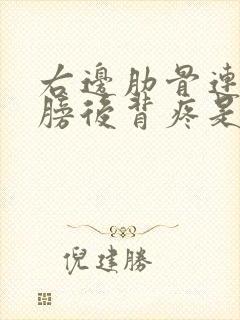 右邊肋骨連
膀後背疼是
倪建勝